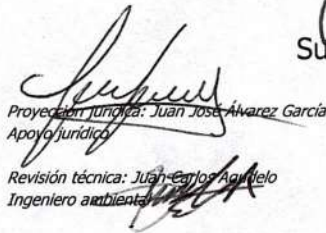 Su
Proyección jurídica: Juan José Álvarez García
Apoyo jurídico
Revisión técnica: Juan Carlos Agudelo
Ingeniero ambiental